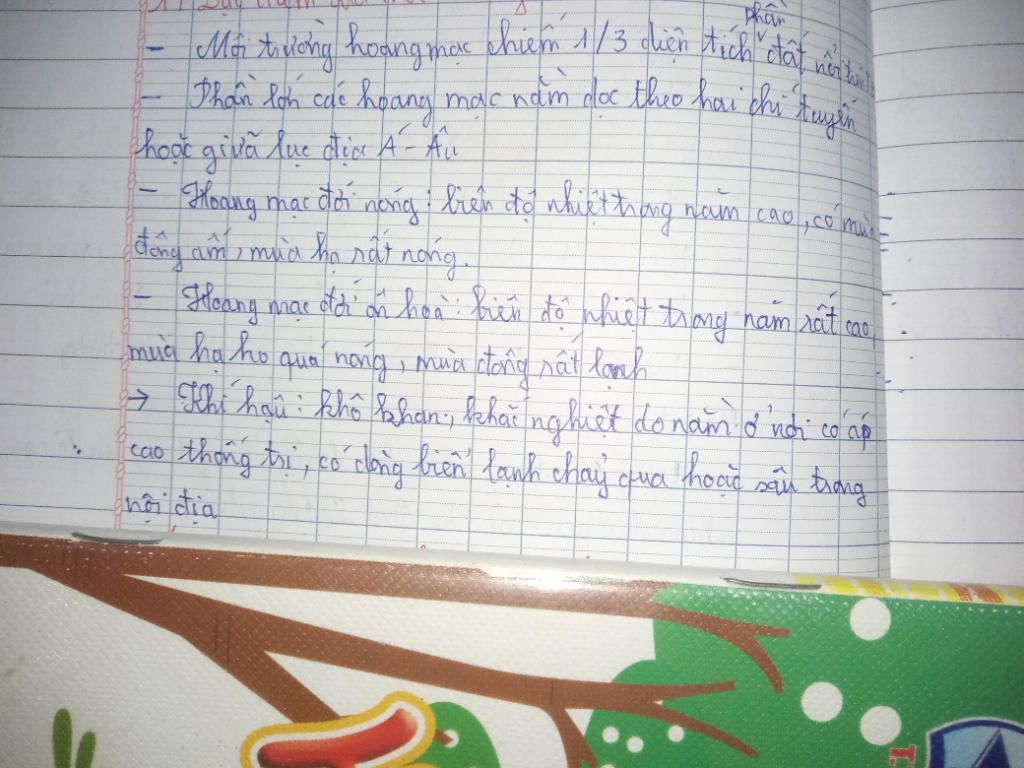 1. Đặc điểm
phần
- Môi trường hoang mạc chiếm 1/3 diện tích đất nổi
- Phần lớn các hoang mạc nằm dọc theo hai chí tuyến
hoặc giữa lục địa Á - Âu
- Hoang mạc đới nóng: biên độ nhiệt trong năm cao, có mùa
đông ấm, mùa hạ rất nóng.
- Hoang mạc đới ôn hoà: biên độ nhiệt trong năm rất cao,
mùa hạ ko quá nóng, mùa đông rất lạnh
→ Khí hậu: khô khan, khắc nghiệt do nằm ở nơi có áp
cao thống trị, có dòng biển lạnh chảy qua hoặc sâu trong
nội địa